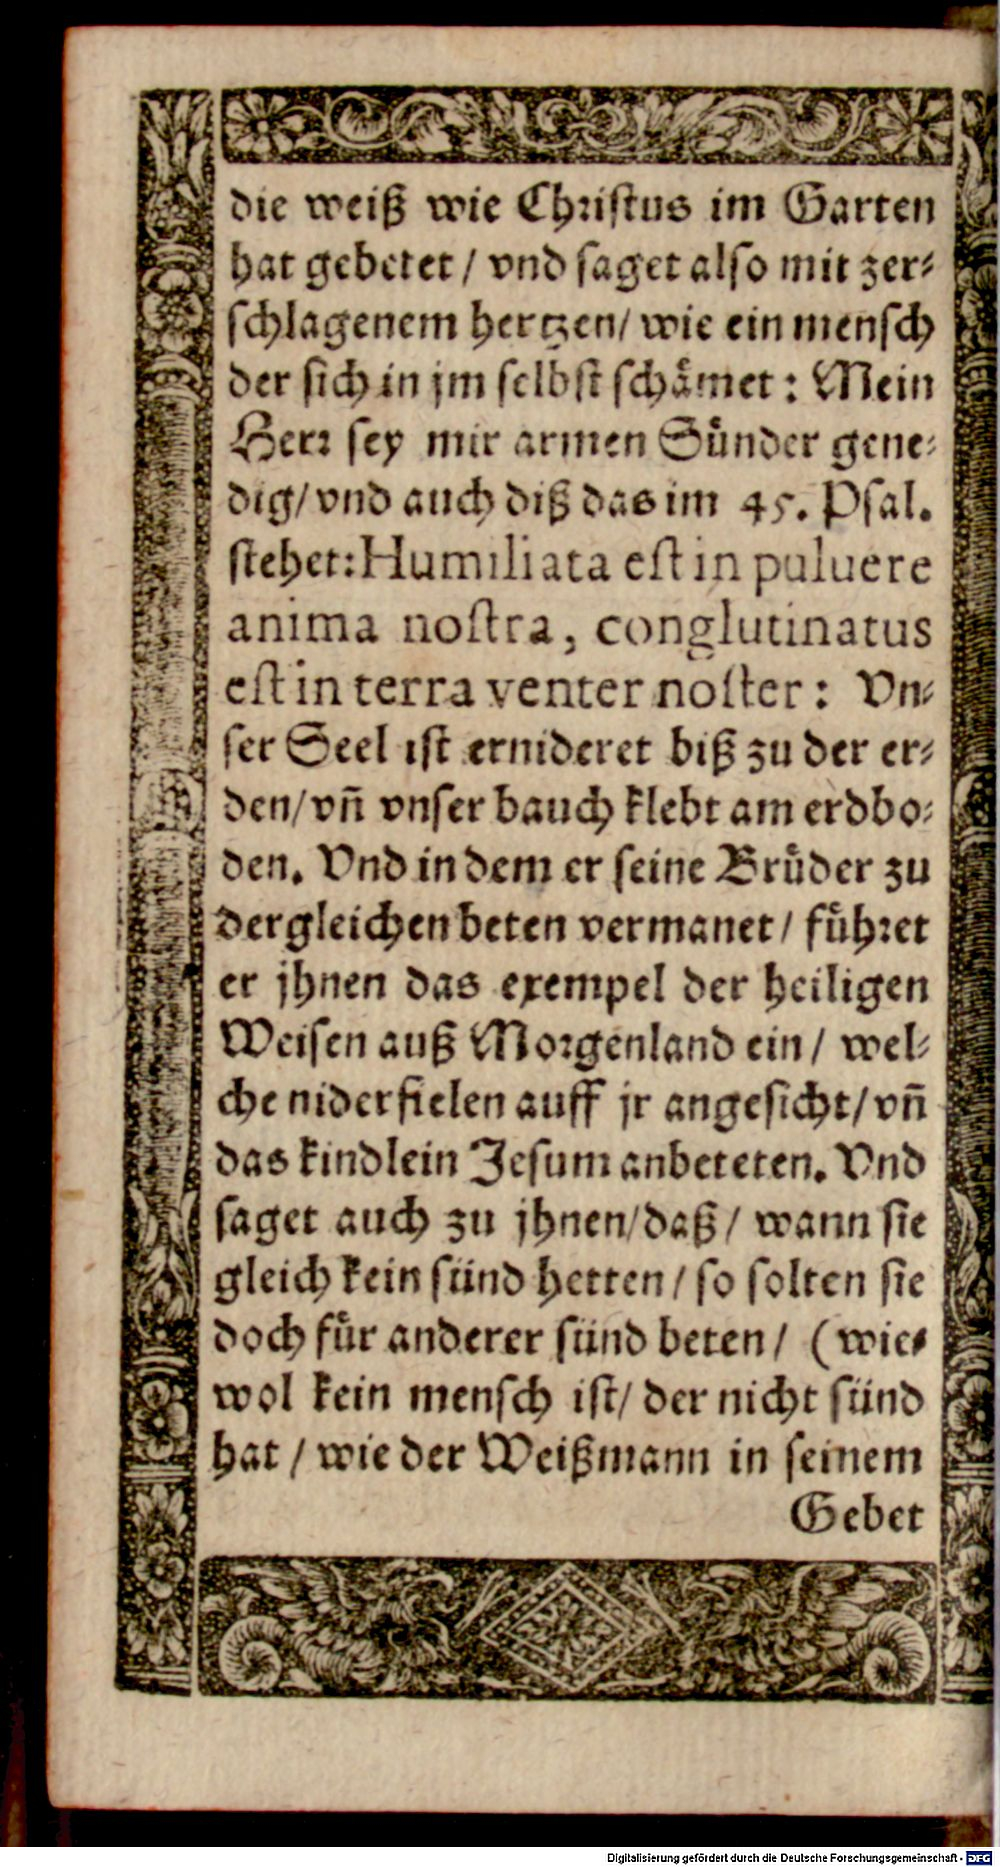 die weiß wie Christus im Garten
hat gebetet / vnd saget also mit zer⸗
schlagenem hertzen / wie ein mensch
der sich in jm selbst schaͤmet : Mein
Herr sey mir armen Suͤnder gene⸗
dig / vnd auch diß das im 45. Psal.
stehet: Humiliata est in puluere
anima nostra, conglutinatus
est in terra venter noster : Vn⸗
ser Seel ist ernideret biß zu der er⸗
den / vñ vnser bauch klebt am erdbo⸗
den. Vnd in dem er seine Bruͤder zu
dergleichen beten vermanet / fuͤhret
er jhnen das exempel der heiligen
Weisen auß Morgenland ein / wel⸗
che niderfielen auff jr angesicht / vñ
das kindlein Jesum anbeteten. Vnd
saget auch zu jhnen / daß / wann sie
gleich kein sünd hetten / so solten sie
doch fuͤr anderer sünd beten / (wie⸗
wol kein mensch ist / der nicht sünd
hat / wie der Weißmann in seinem
Gebet
Digitalisierung gefördert durch die Deutsche Forschungsgemeinschaft - DFG